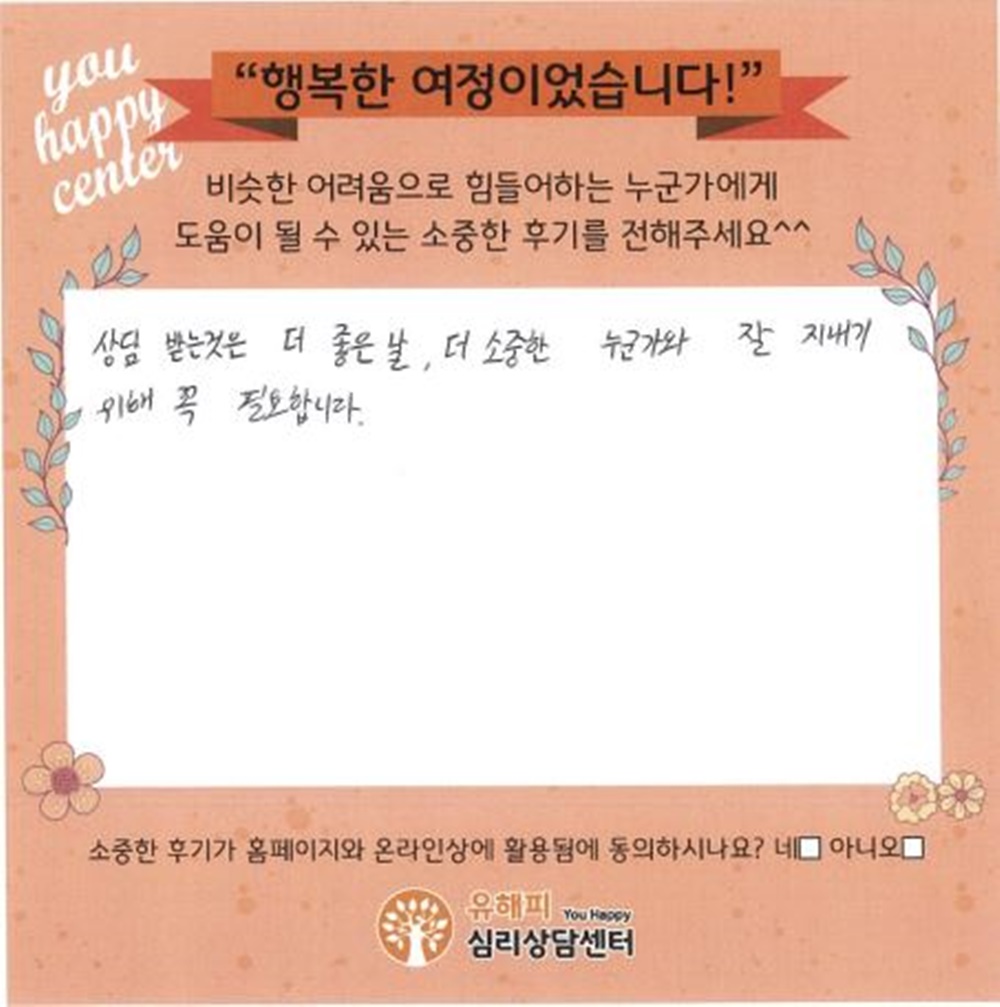 you
happy
center
“행복한 여정이었습니다!”
비슷한 어려움으로 힘들어하는 누군가에게
도움이 될 수 있는 소중한 후기를 전해주세요^^
상담 받는것은 더 좋은 날, 더 소중한 누군가와 잘 지내기
위해 꼭 필요합니다.
소중한 후기가 홈페이지와 온라인상에 활용됨에 동의하시나요? 네□ 아니오□
유해피 You Happy
심리상담센터